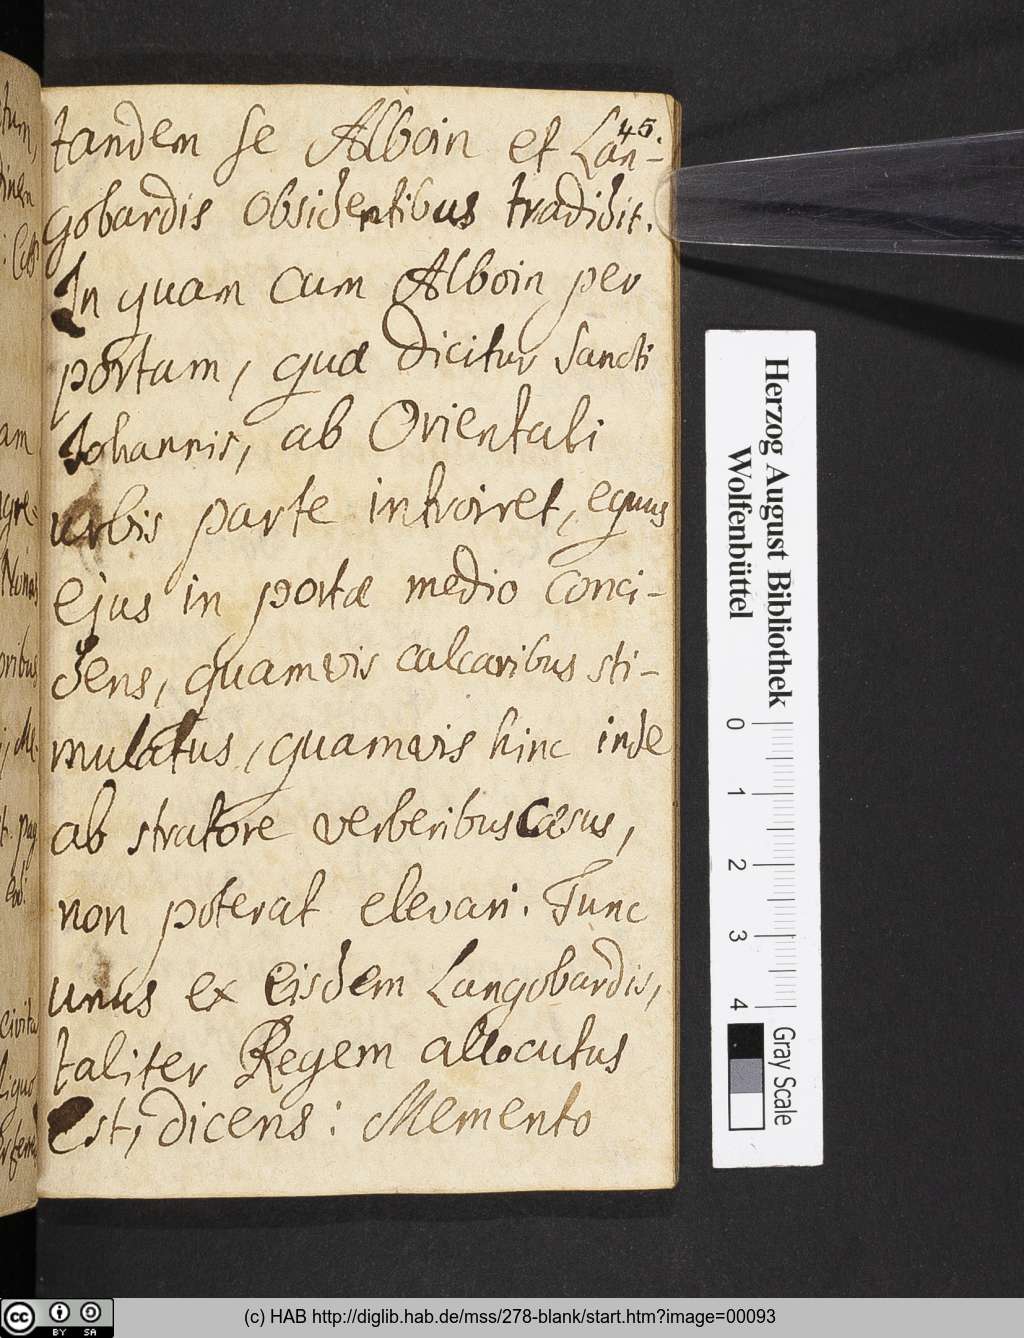 45.
tandem se Alboin et Lan-
gobardis obsidentibus tradidit.
In quam cum Alboin per
portam, quæ dicitur Sancti
Johannis, ab Orientali
urbis parte introiret, equus
ejus in portæ medio conci-
dens, quamvis calcaribus sti-
mulatus, quamvis hinc inde
ab stratore verberibus cæsus,
non poterat elevari. Tunc
unus ex eisdem Langobardis,
taliter Regem allocutus
est, dicens: Memento
Herzog August Bibliothek
Wolfenbüttel
0 1 2 3 4
Gray Scale
cc BY SA
(c) HAB http://diglib.hab.de/mss/278-blank/start.htm?image=00093